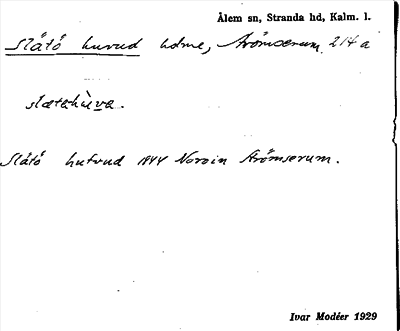 Ålem sn, Stranda hd, Kalm. l.
Slätö huvud holme, Strömserum 214 a
slætəhùvə.
Slätö hufvud 1844 Strömserum.
Ivar Modéer 1929